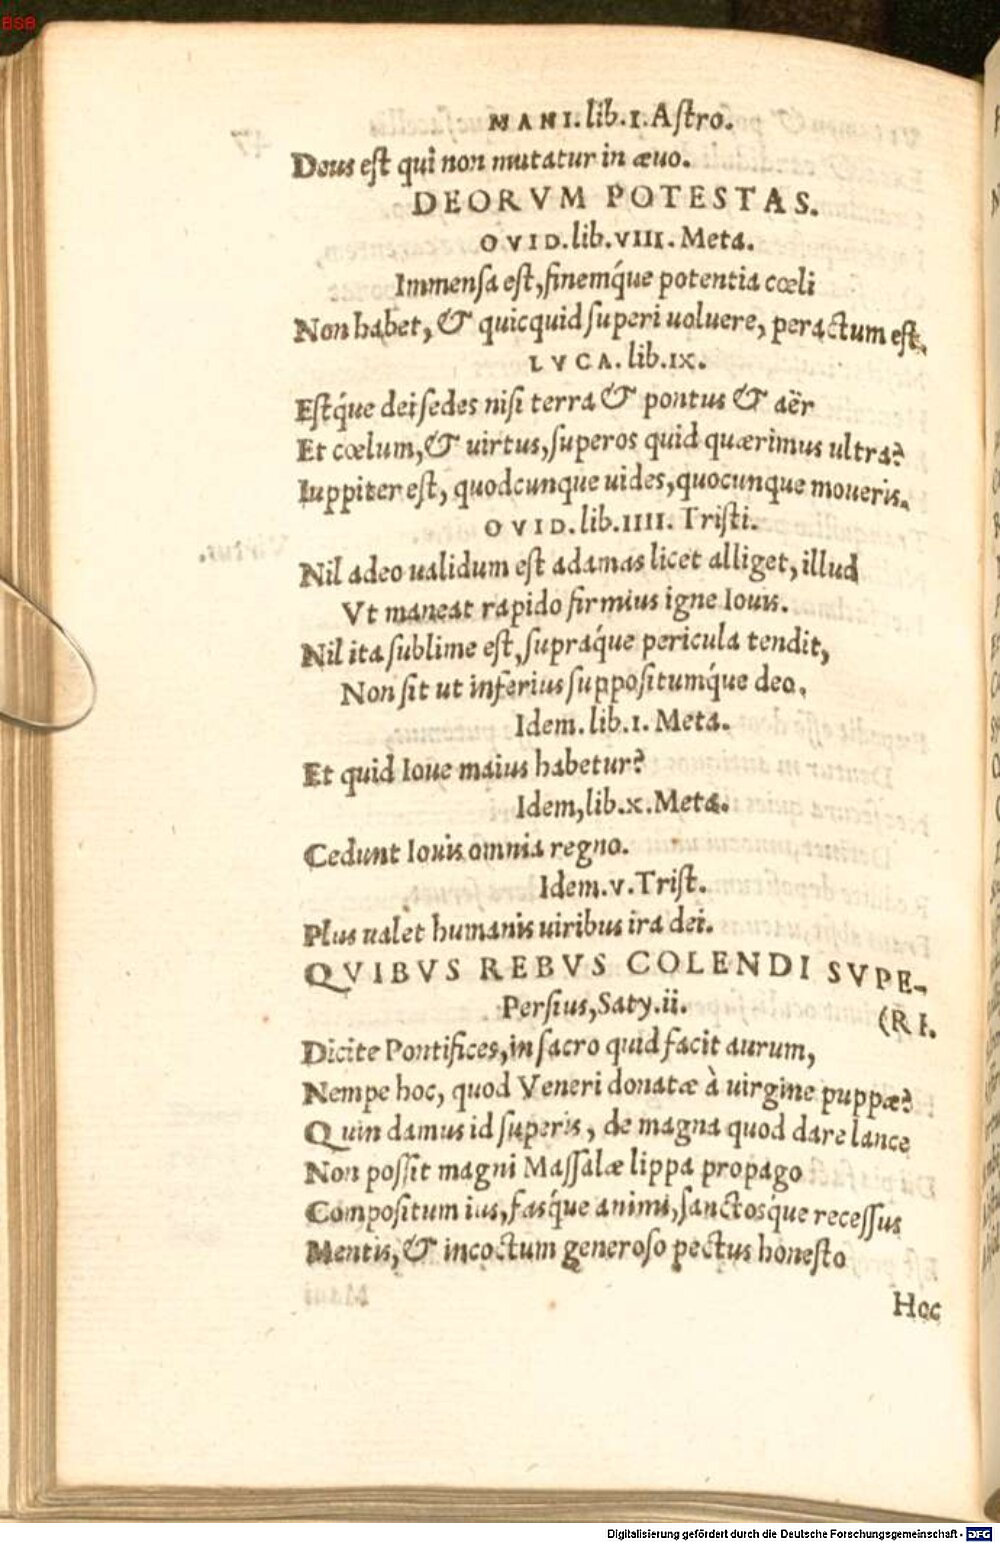 BSB
MANI. lib. I. Astro.
Deus est qui non mutatur in æuo.
DEORVM POTESTAS.
OVID. lib. VIII. Meta.
Immensa est, finemq́ue potentia cœli
Non habet, & quicquid superi uoluere, peractum est.
LVCA. lib. IX.
Estq́ue dei sedes nisi terra & pontus & aër
Et cœlum, & uirtus, superos quid quærimus ultra?
Iuppiter est, quodcunque uides, quocunque moueris.
OVID. lib. IIII. Tristi.
Nil adeo ualidum est adamas licet alliget, illud
Vt maneat rapido firmius igne Iouis.
Nil ita sublime est, supraq́ue pericula tendit,
Non sit ut inferius suppositumq́ue deo.
Idem. lib. I. Meta.
Et quid Ioue maius habetur?
Idem, lib. x. Meta.
Cedunt Iouis omnia regno.
Idem. v. Trist.
Plus ualet humanis uiribus ira dei.
QVIBVS REBVS COLENDI SVPE-
(RI.
Persius, Saty. ii.
Dicite Pontifices, in sacro quid facit aurum,
Nempe hoc, quod Veneri donatæ à uirgine puppæ?
Quin damus id superis, de magna quod dare lance
Non possit magni Massalæ lippa propago
Compositum ius, fasq́ue animi, sanctosq́ue recessus
Mentis, & incoctum generoso pectus honesto
Hoc
Digitalisierung gefördert durch die Deutsche Forschungsgemeinschaft - DFG